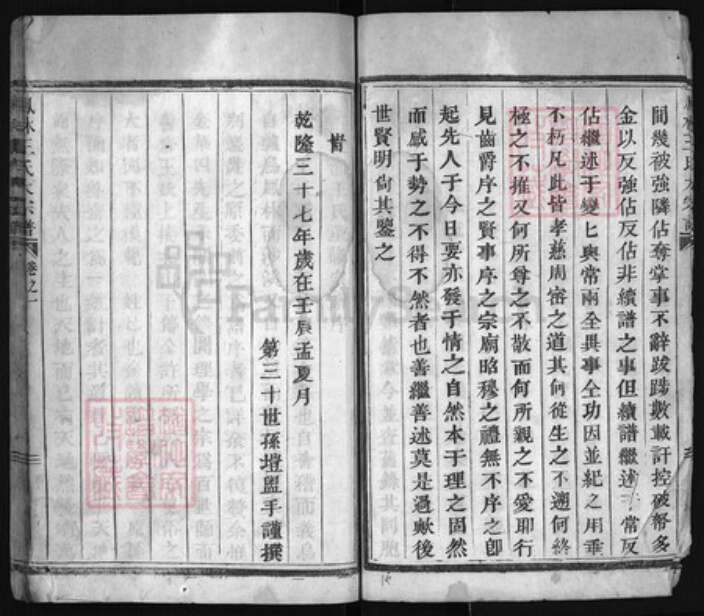 間幾被強隣佔奪掌事不辭跋踄數載訐控破帑多
金以反強佔反佔非續譜之事但續譜繼述于常反
佔繼述于變匕與常兩全畀事全功因並紀之用垂
不朽凡此皆孝慈周審之道其何從生之不遡何終
極之不推又何所尊之不敬而何所親之不愛即行
見齒爵序之賢事序之宗廟昭穆之禮無不序之卽
起先人于今日要亦發于情之自然本于理之固然
而感于勢之不得不然者也善繼善述莫是過歟後
世賢明尙其鑒之
旹
乾隆三十七年歲在壬辰孟夏月
第三十世孫塏盥手謹撰
林王氏大宗譜
卷之一
FamilySearch